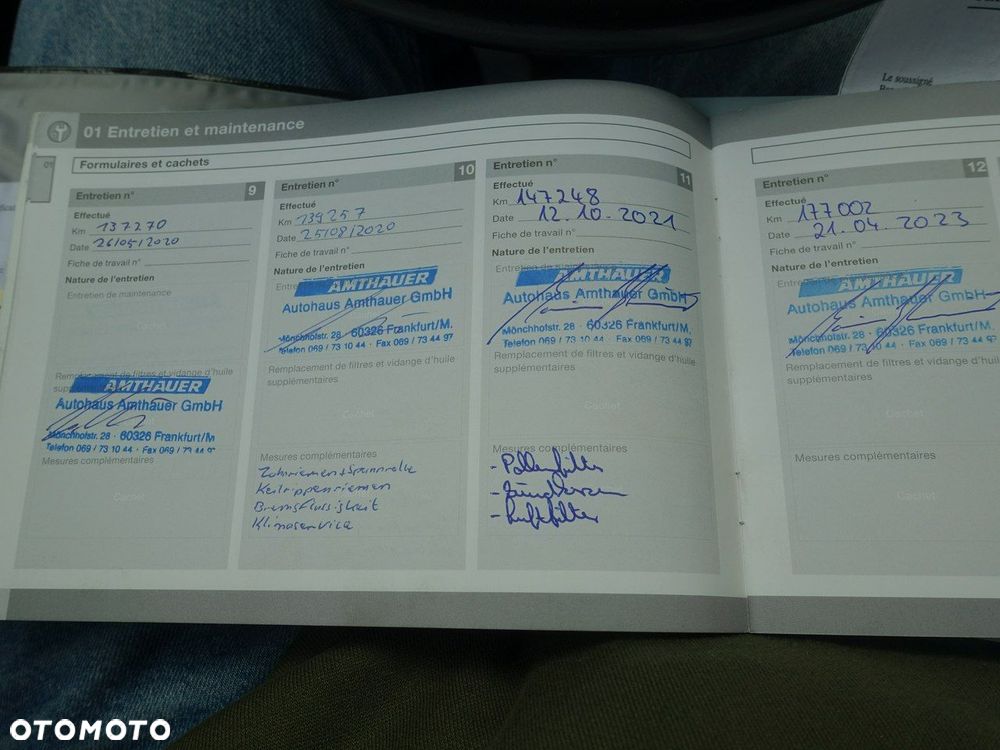 Le soussigné
01 Entretien et maintenance
01
Formulaires et cachets
Entretien n° 9
Effectué
Km 137270
Date 26/05/2020
Fiche de travail n°
Nature de l'entretien
Entretien de maintenance
Remplacement de filtres et vidange d'huile
AMTHAUER
Autohaus Amthauer GmbH
Mönchhofstr. 28 · 60326 Frankfurt/M
Telefon 069 / 73 10 44 · Fax 069 / 73 44 97
Mesures complémentaires
Cachet
Entretien n° 10
Effectué
Km 139257
Date 25/08/2020
Fiche de travail n°
Nature de l'entretien
AMTHAUER
Autohaus Amthauer GmbH
Mönchhofstr. 28 · 60326 Frankfurt/M.
Telefon 069 / 73 10 44 · Fax 069 / 73 44 97
Remplacement de filtres et vidange d'huile
supplémentaires
Cachet
Mesures complémentaires
Zahnriemen + Spannrolle
Keilrippenriemen
Bremsflüssigkeit
Klimaservice
Entretien n° 11
Effectué
Km 147248
Date 12.10.2021
Fiche de travail n°
Nature de l'entretien
AMTHAUER
Autohaus Amthauer GmbH
Mönchhofstr. 28 · 60326 Frankfurt/M.
Telefon 069 / 73 10 44 · Fax 069 / 73 44 97
Remplacement de filtres et vidange d'huile
supplémentaires
Cachet
Mesures complémentaires
- Pollenfilter
- Zündkerzen
- Luftfilter
Entretien n° 12
Effectué
Km 177002
Date 21.04.2023
Fiche de travail n°
Nature de l'entretien
AMTHAUER
Autohaus Amthauer GmbH
Mönchhofstr. 28 · 60326 Frankfurt/M.
Telefon 069 / 73 10 44 · Fax 069 / 73 44 97
Remplacement de filtres et vidange d'huile
supplémentaires
Cachet
Mesures complémentaires
Cachet
OTOMOTO